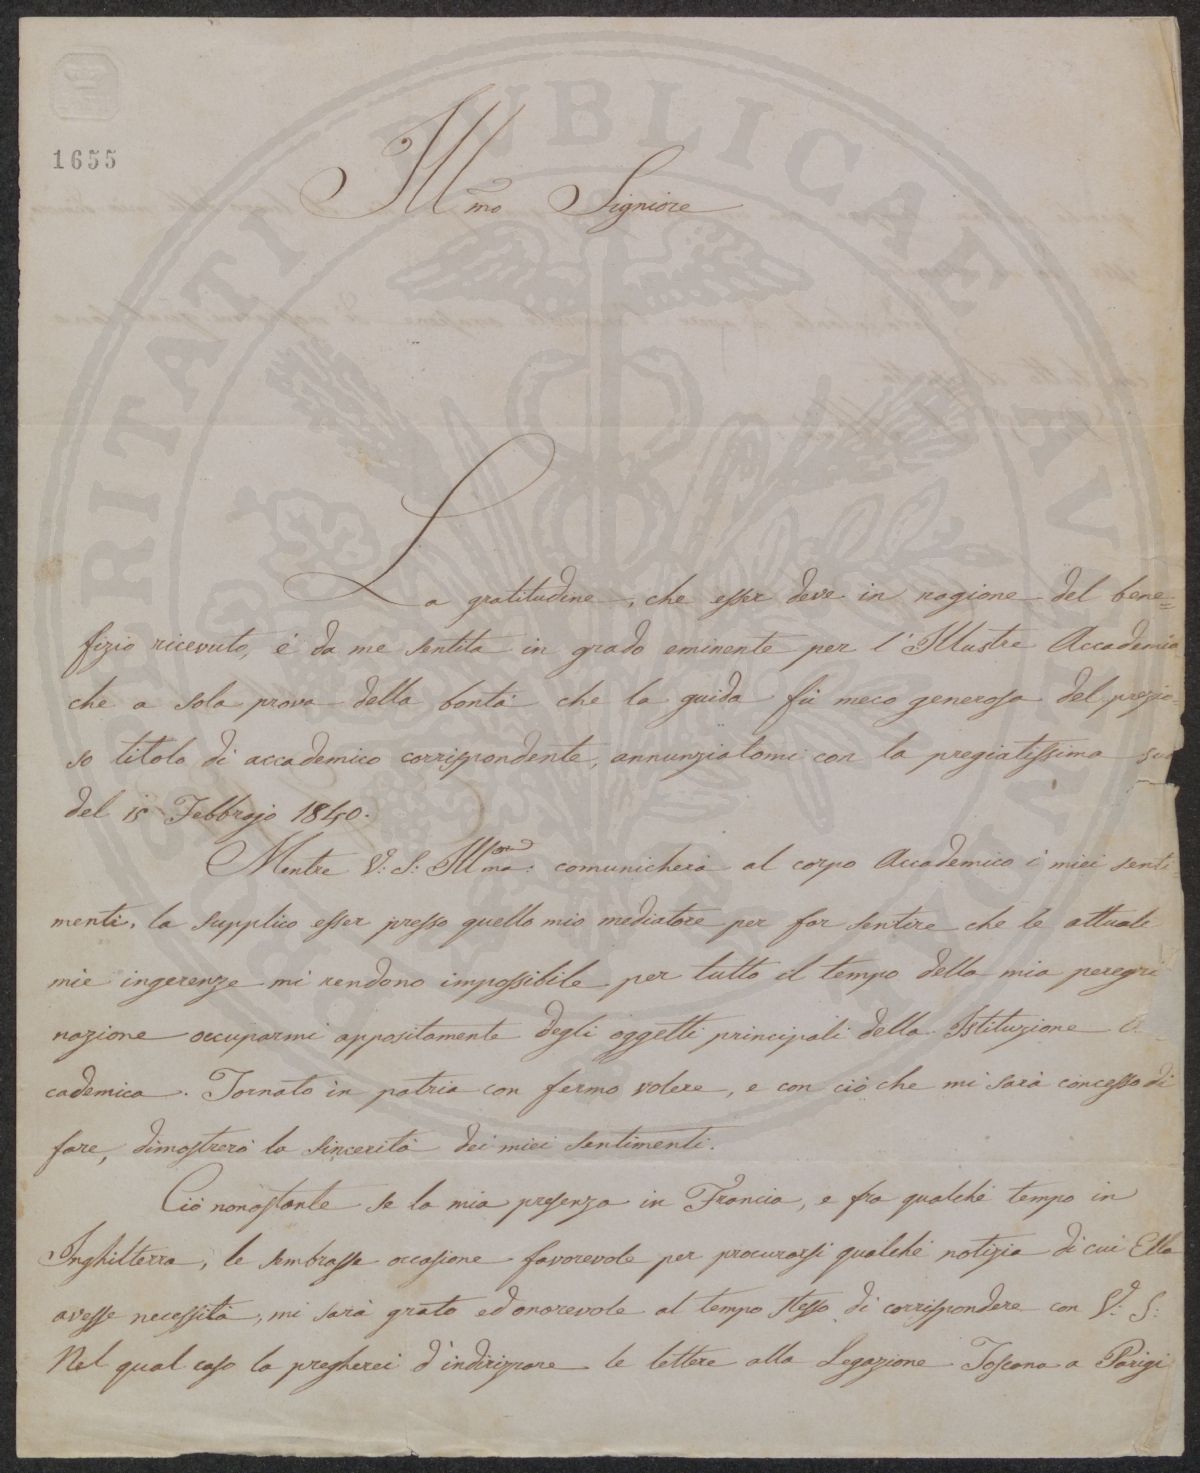 1655
Ill.mo Signiore
La gratitudine, che esser deve in ragione del bene=
fizio ricevuto, é da me sentita in grado eminente per l'Illustre Accademia
che a sola prova della bontà che la guida fù meco generosa del prezio=
so titolo di accademico corrispondente, annunziatomi con la pregiatissima sua
del 15 Febbrajo 1840.
Mentre V: S: Ill.ma: comunicherà al corpo Accademico i miei senti
menti, la supplico esser presso quello mio mediatore per far sentire che le attuali
mie ingerenze mi rendono impossibile per tutto il tempo della mia peregri
nazione occuparmi appositamente degli oggetti principali della Istituzione A
cademica. Tornato in patria con fermo volere, e con ciò che mi sarà concesso di
fare, dimostrerò la sincerità dei miei sentimenti.
Ciò nonostante se la mia presenza in Francia, e fra qualche tempo in
Inghilterra, le sembrasse occasione favorevole per procurarsi qualche notizia di cui Ella
avesse necessità, mi sarà grato ed onorevole al tempo stesso di corrispondere con V: S:
Nel qual caso la pregherei d'indirizzare le lettere alla Legazione Toscana a Parigi